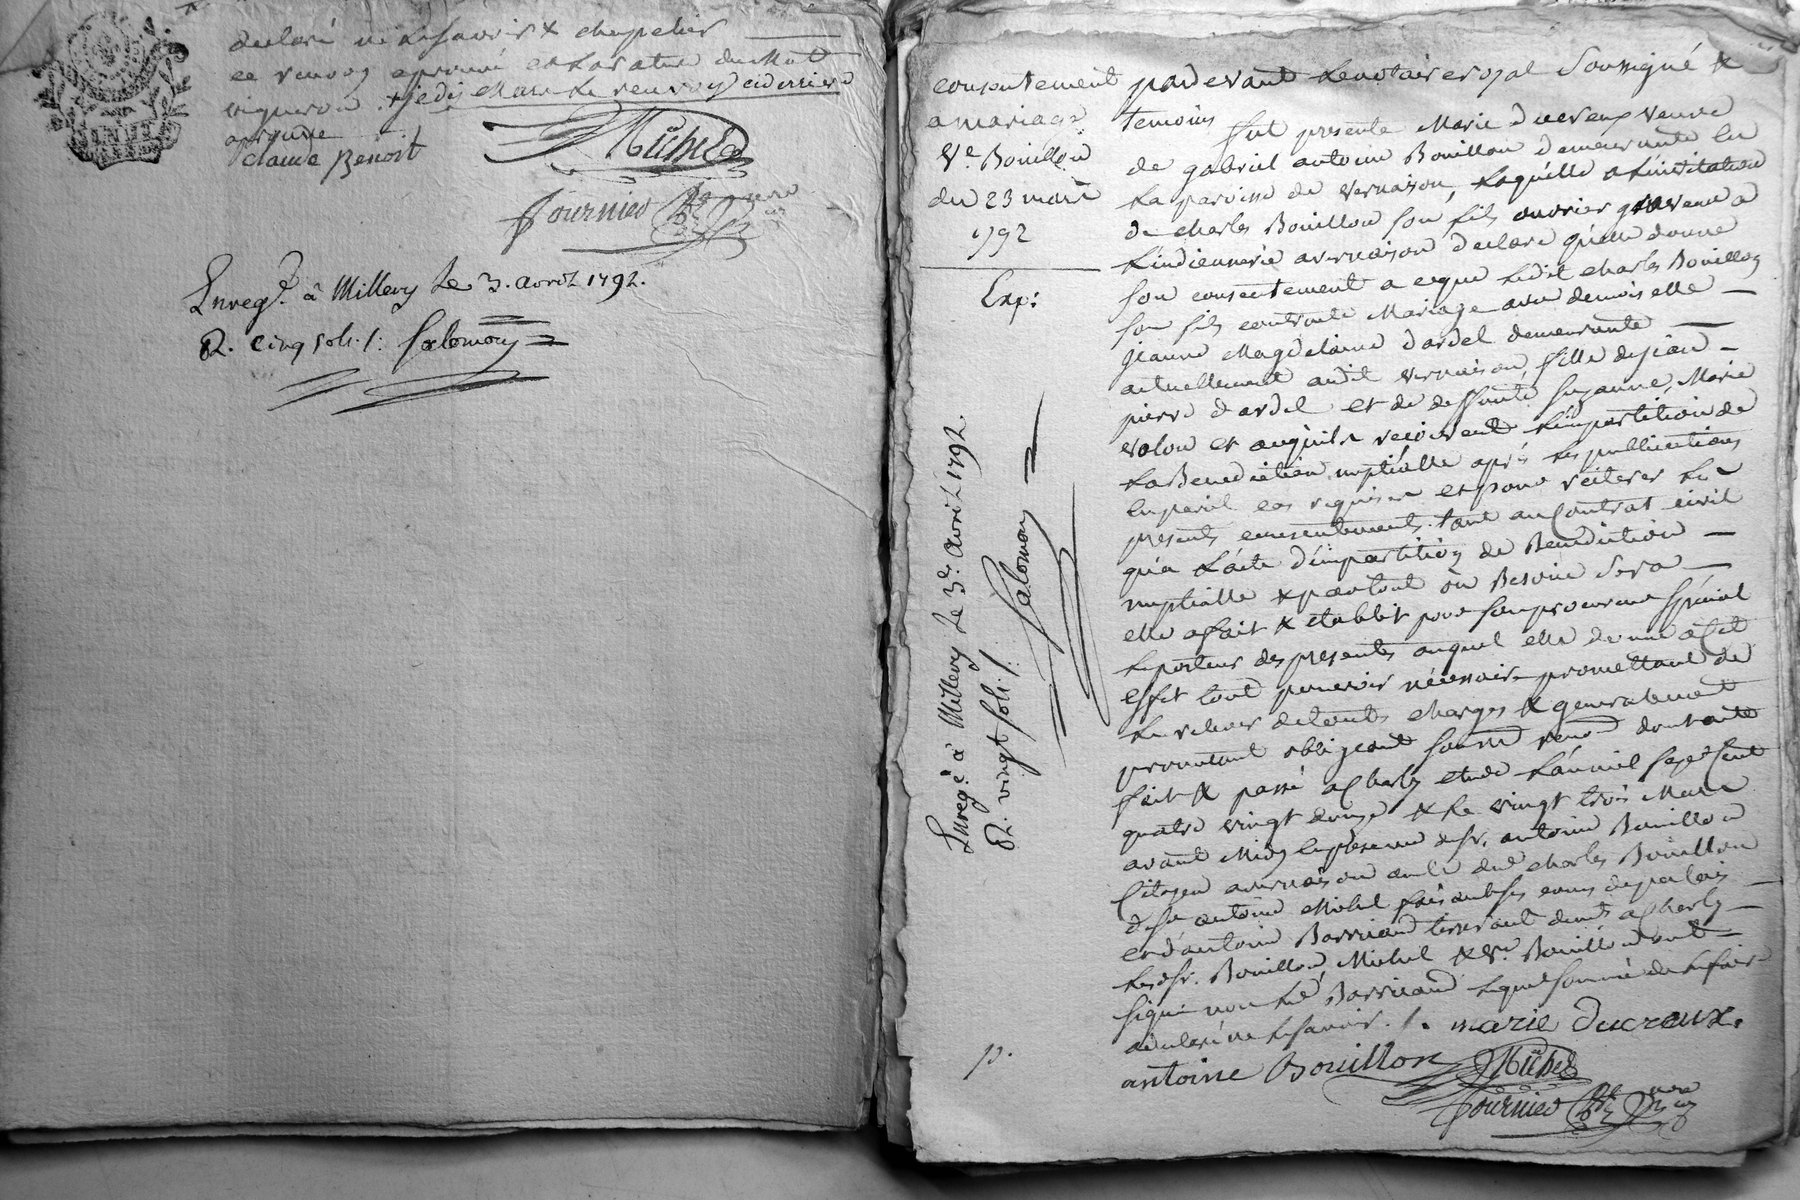 declaré ne le savoir & chapelier
ce renvoy aprouvé et la rature du mot
vigneron + je dis Marc le renvoy ci derriere
aprouvé
claude Benoit
Michel
fournier
Enreg.é à Millery le 3. avril 1792.
R. cinq sols ./: Salomon
consentement
a mariage
Ve. Bouillon
du 23 mars
1792
Exp:
Enreg.é à Millery le 3e. avril 1792.
R. vingt sols ./: Salomon
p.
pardevant le notaire royal soussigné &
temoins fut presente Marie ducreux veuve
de gabriel antoine Bouillon demeurante en
la paroisse de vernaison, laquelle a l'invitation
de charles Bouillon son fils ouvrier graveur a
l'indiennerie a vernaison declare qu'elle donne
son consentement a ce que ledit charles Bouillon
son fils contracte Mariage avec demoiselle
jeanne Magdelaine dardel demeurante
actuellement audit vernaison, fille de jean
pierre dardel et de deffunte suzanne, Marie
volou et a ce qu'ils recoivent l'impartition de
la Benediction nuptialle après les publications
en pareil cas requises et pour reiterer le
presents consentements tant au Contrat civil
qu'a l'acte d'impartition de Benediction
nuptialle & partout où Besoin sera
elle a fait & etablit pour son procureur special
le porteur des presentes auquel elle donne a cet
effet tout pouvoir nécessaire promettant de
le relever de toutes charges & generalement
promettant obligeant soumd renond dont acte
fait & passé a Charly etude l'an mil sept cent
quatre vingt douze & le vingt trois Mars
avant Midy en presence de sr. antoine Bouillon
Citoyen a vernaison oncle dud charles Bouillon
de sr antoine Michel
et d'antoine Barricand tisserant demts a Charly
lesd sr. Bouillon Michel & ve. Bouillon ont
signé non led Barricand lequel sommé de le faire
a declaré ne le savoir ./. marie ducreux.
antoine Bouillon Michel
fournier